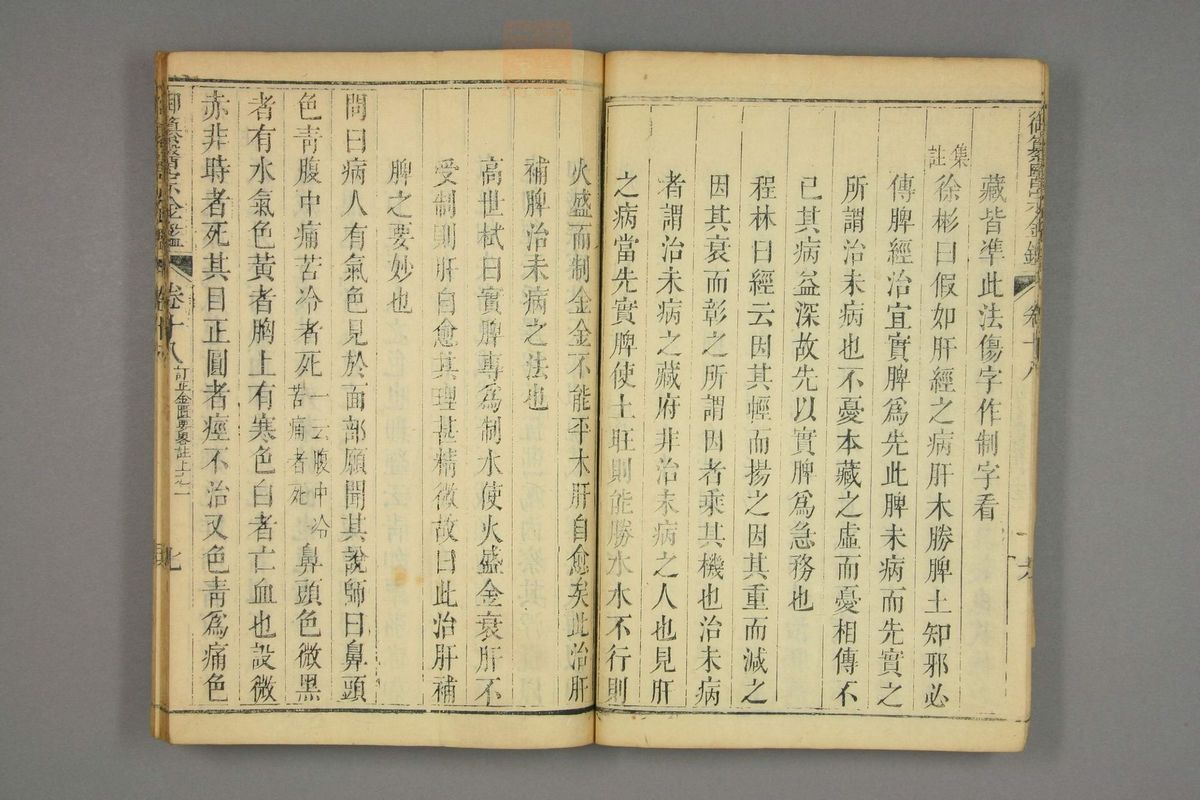 藏皆準此法傷字作制字看
集註徐彬曰假如肝經之病肝木勝脾土知邪必
傳脾經治宜實脾爲先此脾未病而先實之
所謂治未病也不憂本藏之虛而憂相傳不
已其病益深故先以實脾爲急務也
程林曰經云因其輕而揚之因其重而減之
因其衰而彰之所謂因者乘其機也治未病
者謂治未病之藏府非治未病之人也見肝
之病當先實脾使土旺則能勝水水不行則
火盛而制金金不能平木肝自愈矣此治肝
補脾治未病之法也
高世栻曰實脾專爲制水使火盛金衰肝不
受制則肝自愈其理甚精微故曰此治肝補
脾之要妙也
問曰病人有氣色見於面部願聞其說師曰鼻頭
色青腹中痛苦冷者死一云腹中冷苦痛者死鼻頭色微黑
者有水氣色黃者胸上有寒色白者亡血也設微
赤非時者死其目正圓者痙不治又色青爲痛色
御纂醫宗金鑑 卷十八 訂正金匱要畧註上之一 七